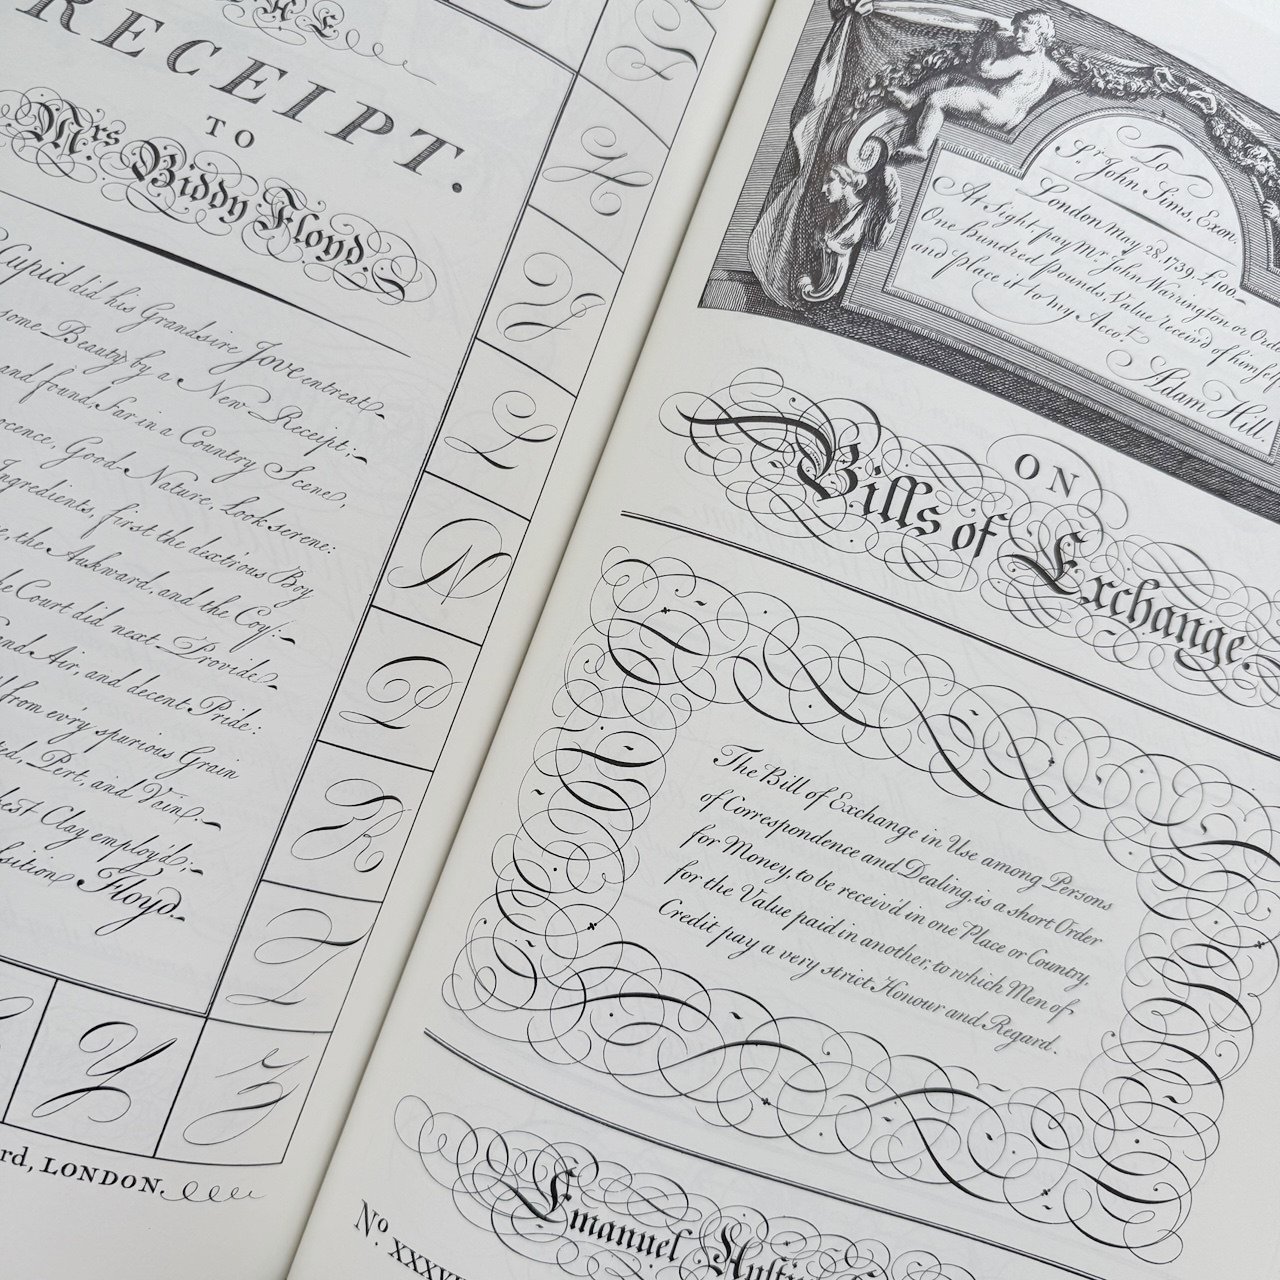 THE
RECEIPT.
TO
Mrs Biddy Floyd.
Cupid did his Grandsire Jove entreat
some Beauty by a New Receipt;
and found, far in a Country Scene,
Good Nature, Look serene:
Ingredients, first the dext'rous Boy
the Aukward, and the Coy;
the Court did next Provide
and Air, and decent Pride:
from ev'ry spurious Grain
Pert, and Vain.
Clay employ'd;
Floyd.
F
H
Y
L
N
P
R
T
Y
Z
LONDON.
To
Sr. John Sims, Exon.
London May 28. 1739. £100
At Sight pay Mr John Warrington or Orde
One hundred Pounds, Value receiv'd of himself
and place it to my Accot.
Adam Hill.
ON
Bills of Exchange.
The Bill of Exchange in Use among Persons
of Correspondence and Dealing, is a short Order
for Money, to be receiv'd in one Place or Country,
for the Value paid in another, to which Men of
Credit pay a very strict Honour and Regard.
Emanuel Austin
No. XXXVI